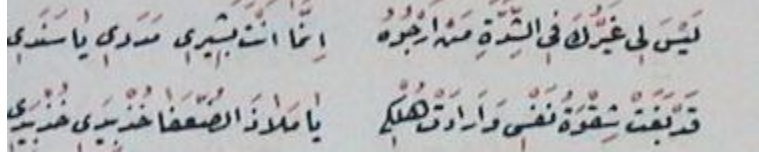 لَيْسَ لِى غَيْرُكَ فِى الشِّدَّةِ مَنْ اَرْجُوهُ اِنَّمَا اَنْتَ بَشِيرِى مَدَدِى يَا سَنَدِى
قَدْ بَغَتْ شِقْوَةُ نَفْسِى وَاَرَادَتْ هُلْكِى يَا مَلَاذَ الضُّعَفَا خُذْ بِيَدِى خُذْ بِيَدِى